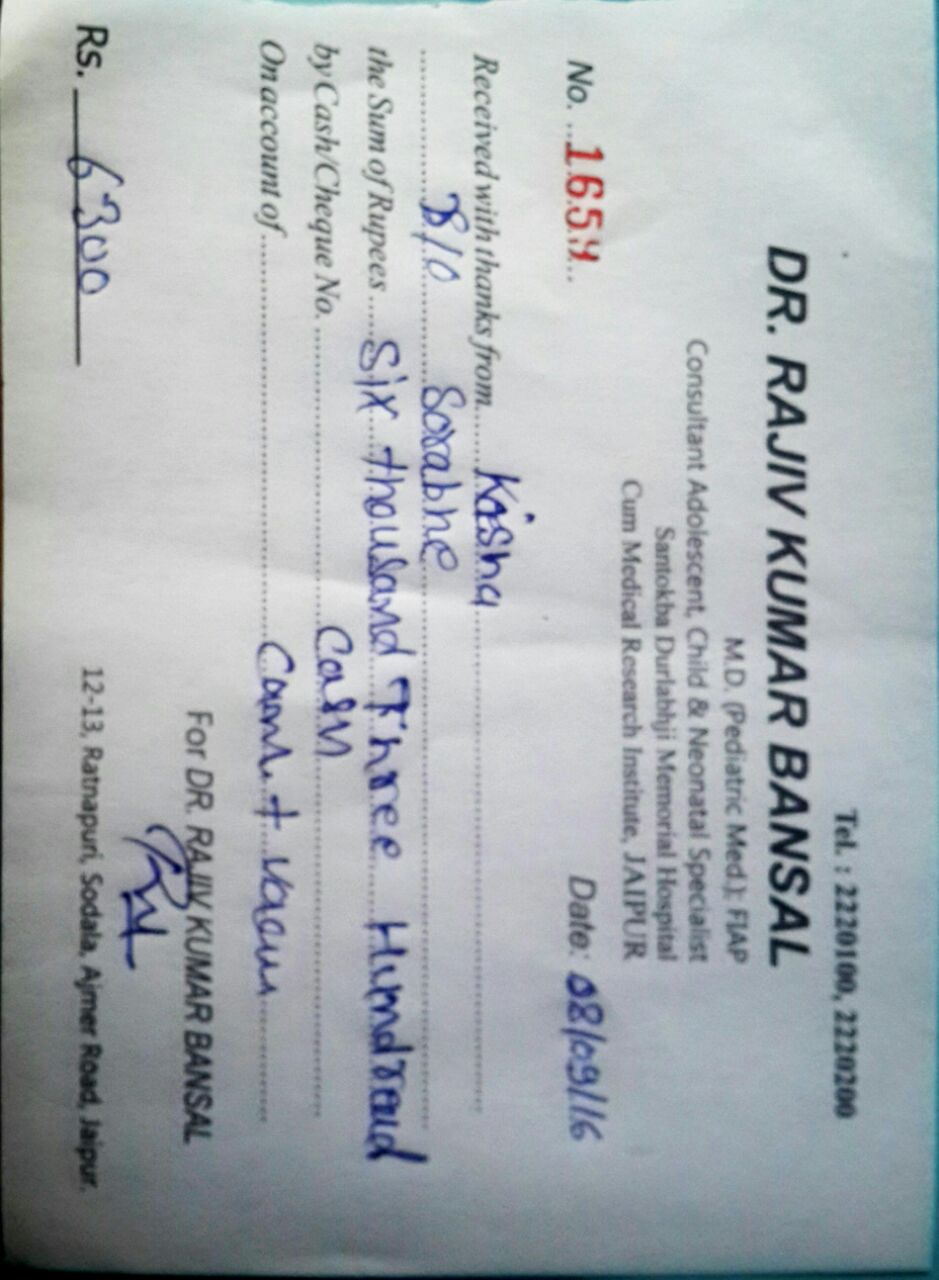 Tel. : 2220100, 2220200
DR. RAJIV KUMAR BANSAL
M.D. (Pediatric Med.); FIAP
Consultant Adolescent, Child & Neonatal Specialist
Santokba Durlabhji Memorial Hospital
Cum Medical Research Institute, JAIPUR
No. 1659 Date: 08/09/16
Received with thanks from
the Sum of Rupees Six thousand Three Hundread
by Cash/Cheque No. Cash
On account of
For DR. RAJIV KUMAR BANSAL
Rs. 6300 12-13, Ratnapuri, Sodala, Ajmer Road, Jaipur.